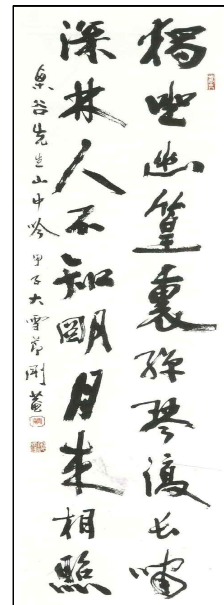 獨坐幽篁裏弹琴復長嘯
深林人不知明月来相照
桌谷先生山中吟 甲子大雪節剛菴